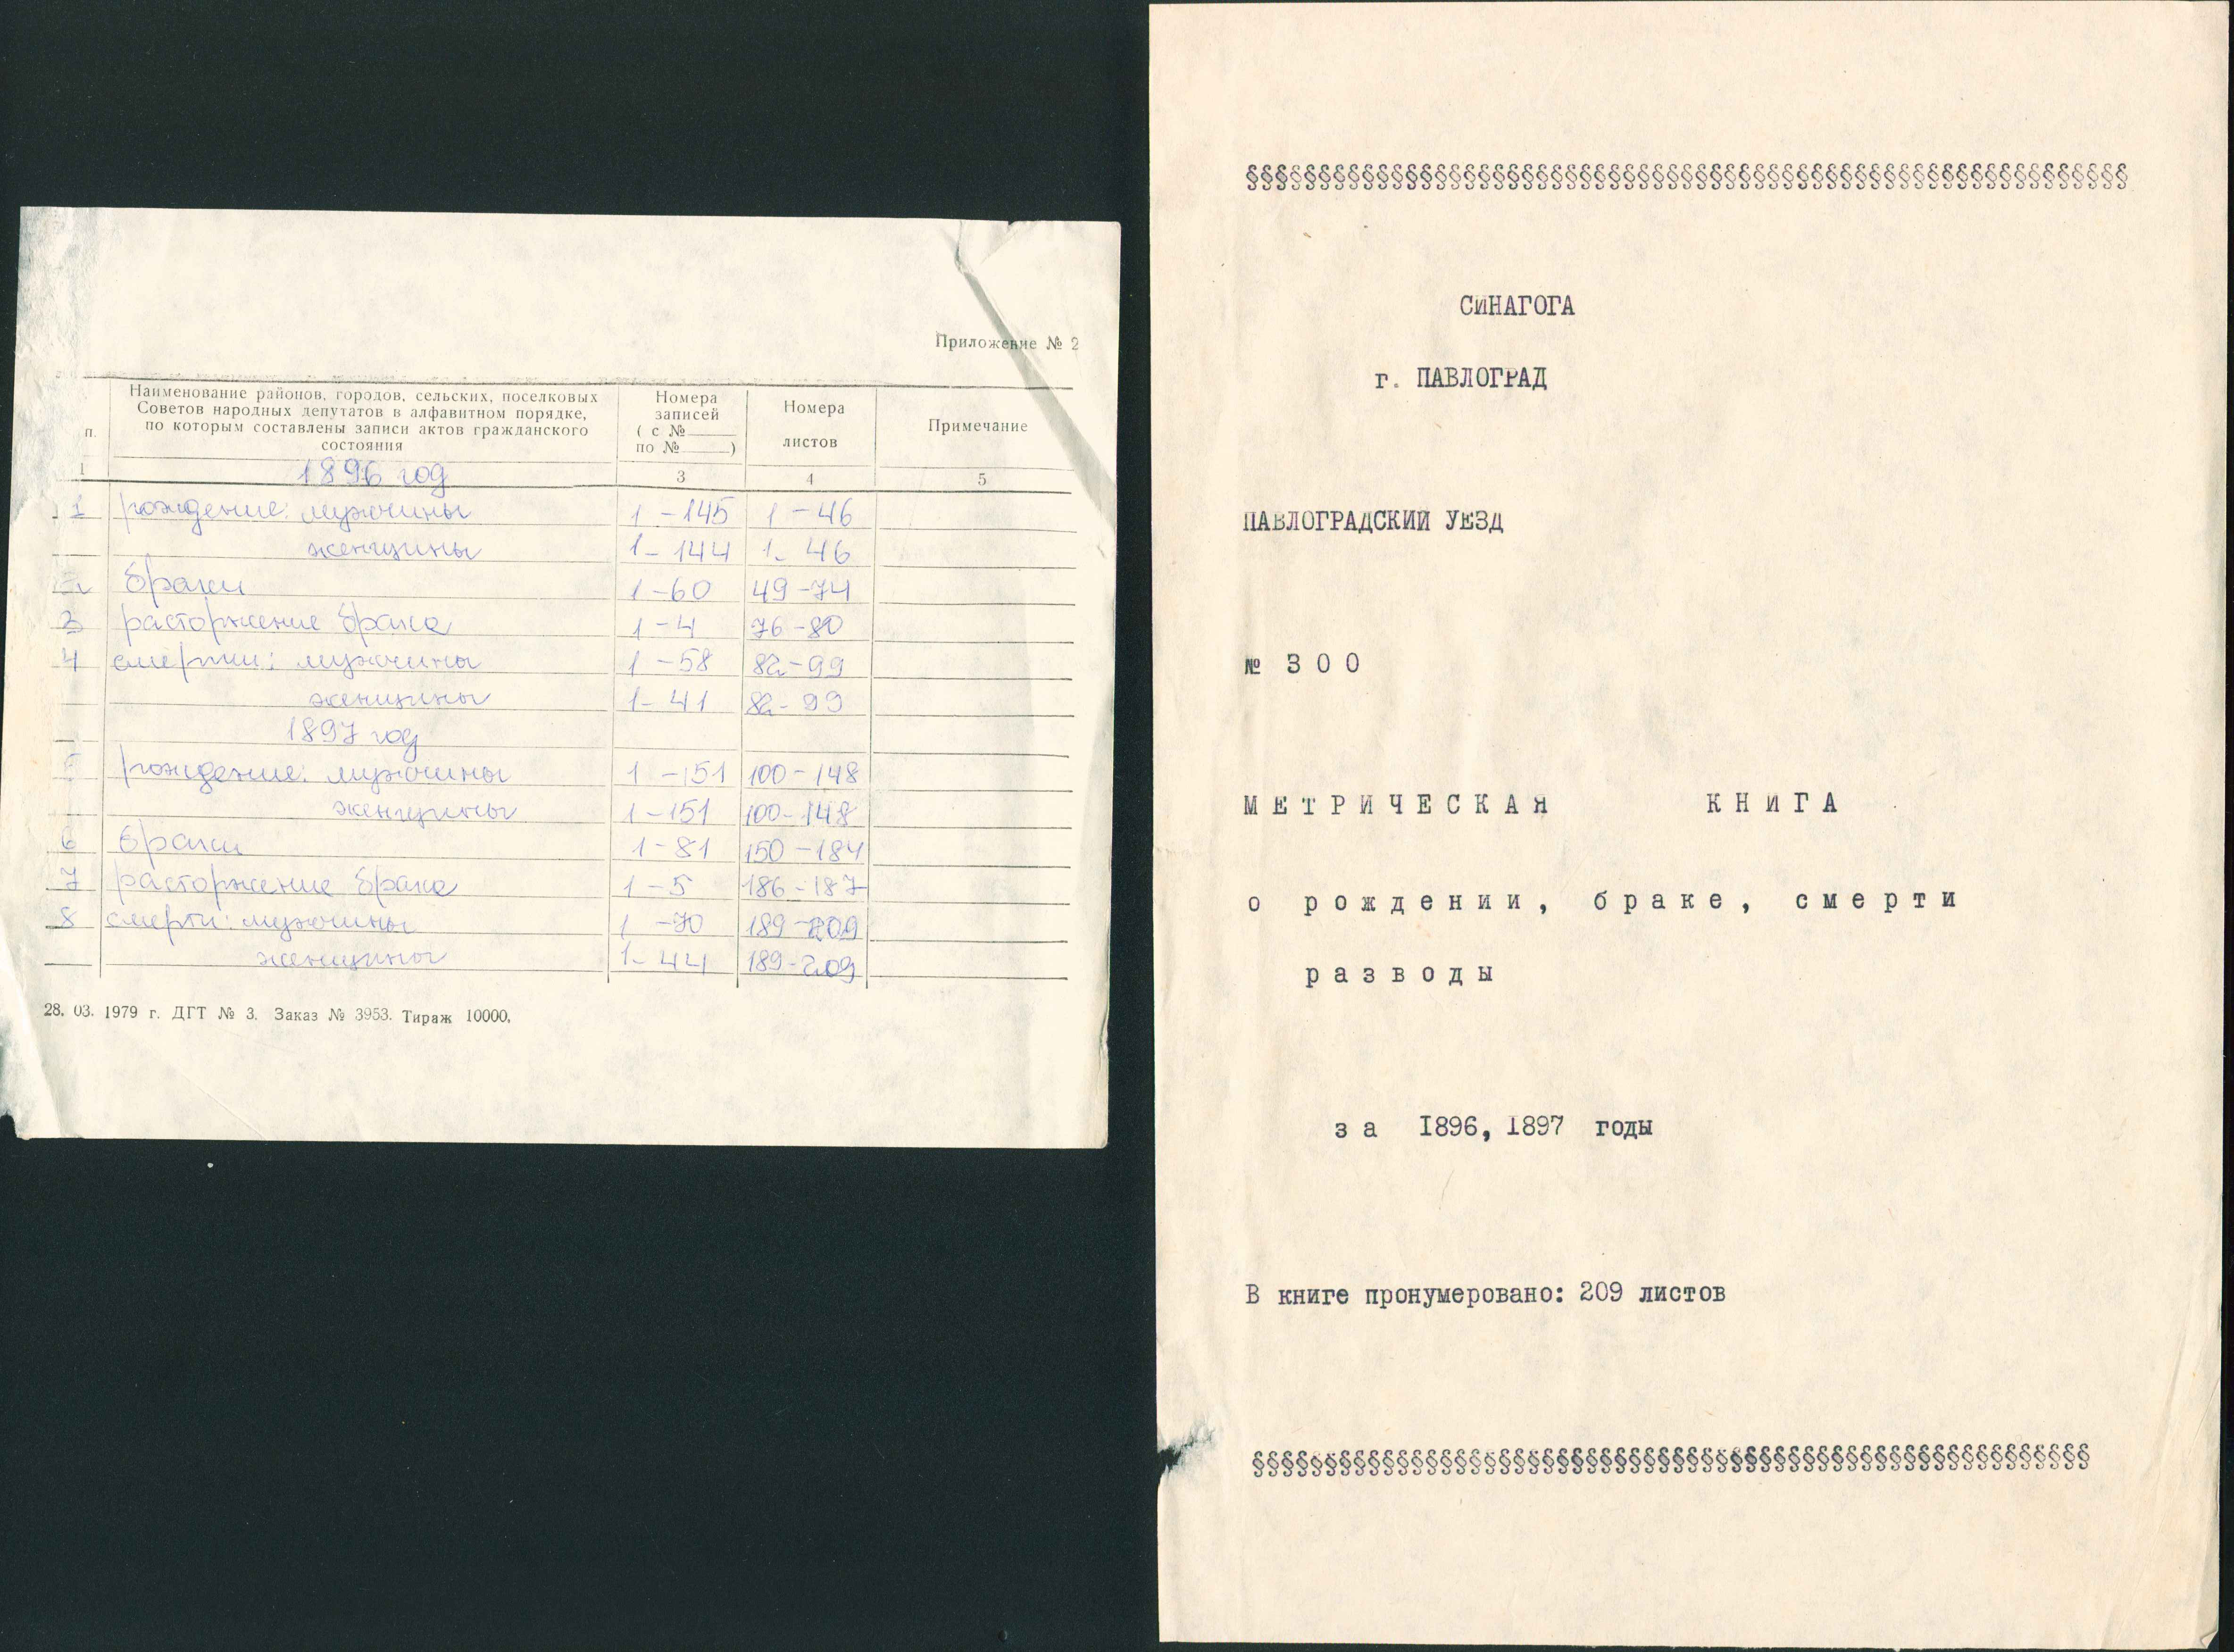 Приложение № 2
п.
Наименование районов, городов, сельских, поселковых
Советов народных депутатов в алфавитном порядке,
по которым составлены записи актов гражданского
состояния
Номера
записей
( с №
по № )
Номера
листов
Примечание
1 1896 год 3 4 5
1 рождение: мужчины 1 - 145 1 - 46
женщины 1 - 144 1 - 46
браки 1 - 60 49 - 74
3 расторжение брака 1 - 4 76 - 80
4 смерти: мужчины 1 - 58 82 - 99
женщины 1 - 41 82 - 99
1897 год
рождение: мужчины 1 - 151 100 - 148
женщины 1 - 151 100 - 148
6 браки 1 - 81 150 - 184
7 расторжение брака 1 - 5 186 - 187
8 смерти: мужчины 1 - 70 189 - 209
женщины 1 - 44 189 - 209
28. 03. 1979 г. ДГТ № 3. Заказ № 3953. Тираж 10000.
§§§§§§§§§§§§§§§§§§§§§§§§§§§§§§§§§§§§§§§§§§§§§§§§§§§§§§§§§§§§§
СИНАГОГА
г. ПАВЛОГРАД
ПАВЛОГРАДСКИЙ УЕЗД
№ 3 0 0
М Е Т Р И Ч Е С К А Я К Н И Г А
о р о ж д е н и и , б р а к е , с м е р т и
р а з в о д ы
з а I896, I897 годы
В книге пронумеровано: 209 листов
§§§§§§§§§§§§§§§§§§§§§§§§§§§§§§§§§§§§§§§§§§§§§§§§§§§§§§§§§§